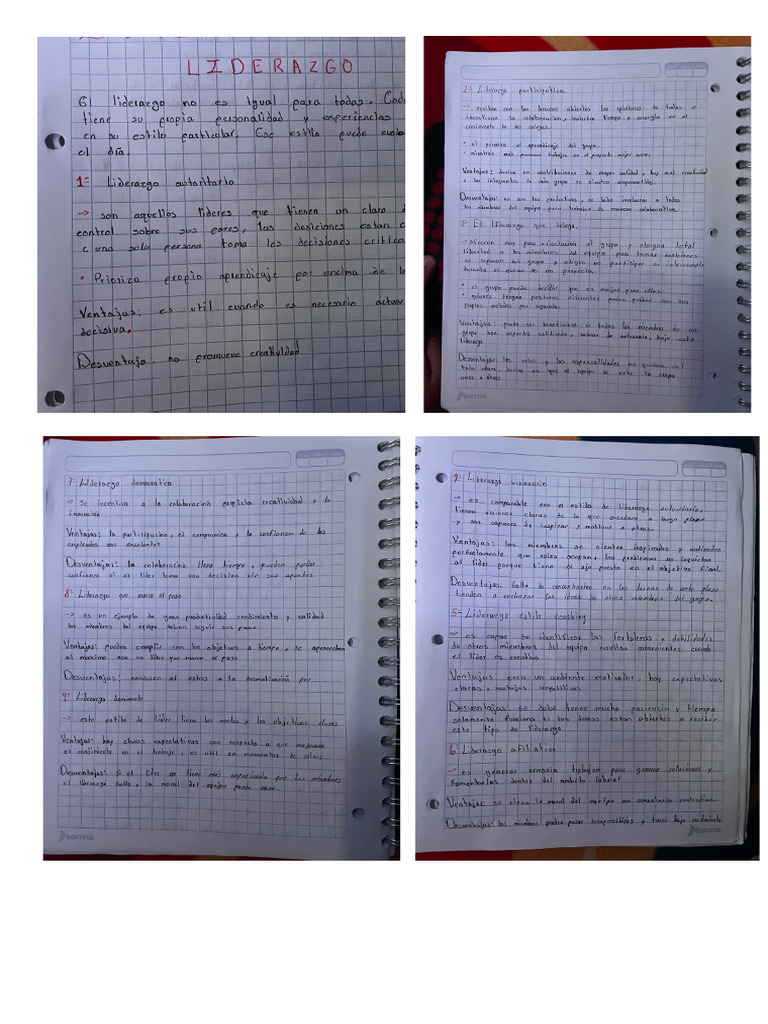 LIDERAZGO
El liderazgo no es igual para todas. Cada
tiene su propia personalidad y experiencias
en su estilo particular. Ese estilo puede
el día.
1= Liderazgo autoritario
→ son aquellos líderes que tienen un claro
control sobre sus pares, las desiciones estan
una sola persona toma les decisiones critica
• Prioriza propio aprendizaje por encima de
Ventajas: es util cuando es necesario actuar
decisiva.
Desventaja. no promueve creatividad
2= Liderazgo participativo
→ reciben con los brazos abiertos las opiniones de todos e
incentivan la colaboración, invierten tiempo y energía en el
crecimiento de sus colegas.
• el primero el aprendizaje del grupo.
• mientras más personas trabajen en el proyecto mejor
Ventajas: deriva en contribuciones de mayor calidad, hay más creatividad
y los integrantes de cada grupo se sienten comprometidos.
Desventajas: no son tan productivos, se debe involucrar a todos
los miembros del equipo para trabajar de manera colaborativa.
3= El liderazgo que delega.
→ ofrecen muy poca orientación al grupo y otorgan total
libertad a los miembros del equipo para tomar desiciones
se separan del grupo y eligen no participar ni interrumpir
durante el curso de un proyecto.
• el grupo puede decidir que es mejor para ellos.
• quienes tengan posturas diferentes pueden probar con sus
propios métodos por separado.
Ventajas: puede ser beneficioso si todos los miembros de un
grupo son expertos calificados, valoran la autonomía, bajo este
liderazgo
Desventajas: los roles y las responsabilidades no quedan del
todo claro, deriva en que el equipo se eche la culpa
unos a otros
7= Liderazgo democratico
→ se incentiva a la colaboracion propicia creatividad y la
innovación
Ventajas: la participacion, el compromiso y la confianza de los
empleados son excelentes
Desventajas: la colaboración lleva tiempo, pueden perder
confianza si el líder toma una decisión sin sus aportes
8= Liderazgo que marca el paso
→ es un ejemplo de gran productividad rendimiento y calidad
los miembros del equipo deben seguir sus pasos
Ventajas: pueden cumplir con los objetivos a tiempo, se aprovechan
al máximo con un líder que marca el paso
Desventajas: conducen al estres a la desmotivación por
9= Liderazgo dominante
→ este estilo de líder tiene las metas y los objetivos claros
Ventajas: hay claras expectativas con respecto a que mejorara
el rendimiento en el trabajo, es util en momentos de crisis
Desventajas: si el líder no tiene más experiencia que los miembros
el liderazgo falla, la moral del equipo puede caer.
4= Liderazgo visionario
→ es comparable con el estilo de liderazgo autoritario,
tienen visiones claras de lo que sucedera a largo plazo
y son capaces de inspirar y motivar a otros.
Ventajas: los miembros se sienten inspirados y entienden
perfectamente que roles ocupan, los problemas no inquietan
al líder porque tiene el ojo puesto en el objetivo final.
Desventajas: Falta de concentracion en las tareas de corto plazo
tienden a rechazar las ideas de otros miembros del grupo.
5= Liderazgo estilo coathing
→ es capaz de identificar las fortalezas y debilidades
de otros miembros del equipo resultan convenientes cuando
el líder es
Ventajas: crea un ambiente motivador, hay expectativas
claras, ventajas competitivas
Desventajas: se debe tener mucha paciencia y tiempo
solamente funciona si los demas estan abiertos a recibir
este tipo de liderazgo
6= Liderazgo afiliativo
→ es generar armonía trabajan para generar relaciones y
fomentarlas dentro del ambito laboral
Ventajas: se eleva la moral del equipo con comentarios
Desventajas: los miembros pueden pasar y tener bajo rendimiento
Norma